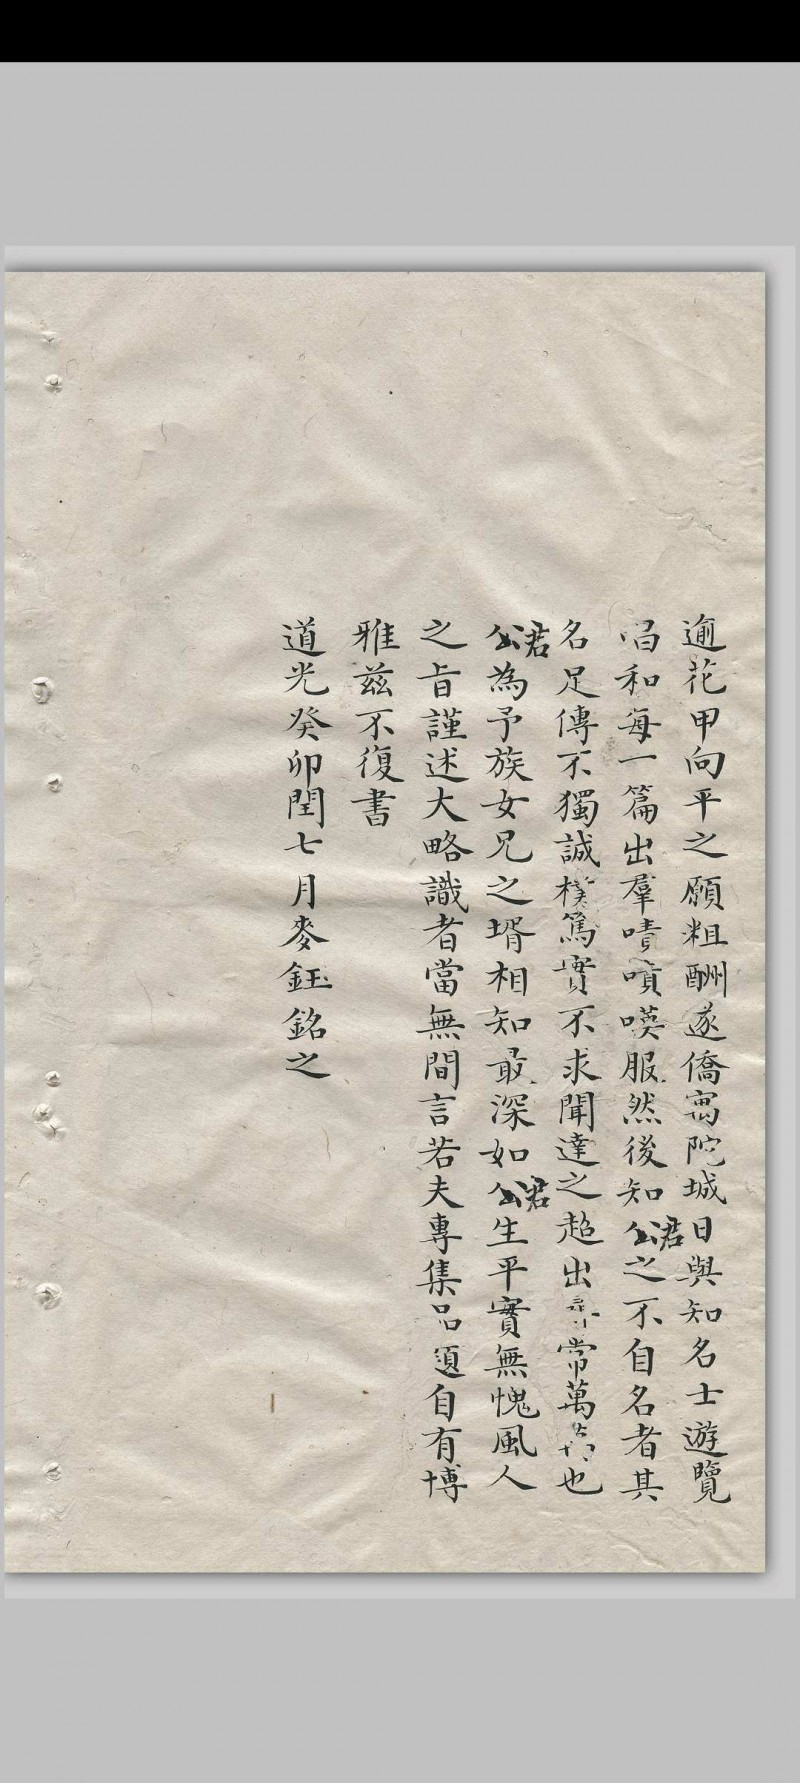 逾花甲向平之願粗酬遂僑寓陀城日與知名士遊覽
唱和每一篇出羣嘖嘖嘆服然後知公君之不自名者其
名足傳不獨誠樸篤實不求聞達之超出尋常萬萬也
公君為予族女兄之壻相知最深如公君生平實無愧風人
之旨謹述大略識者當無間言若夫專集品題自有博
雅茲不復書
道光癸卯閏七月麥鈺銘之